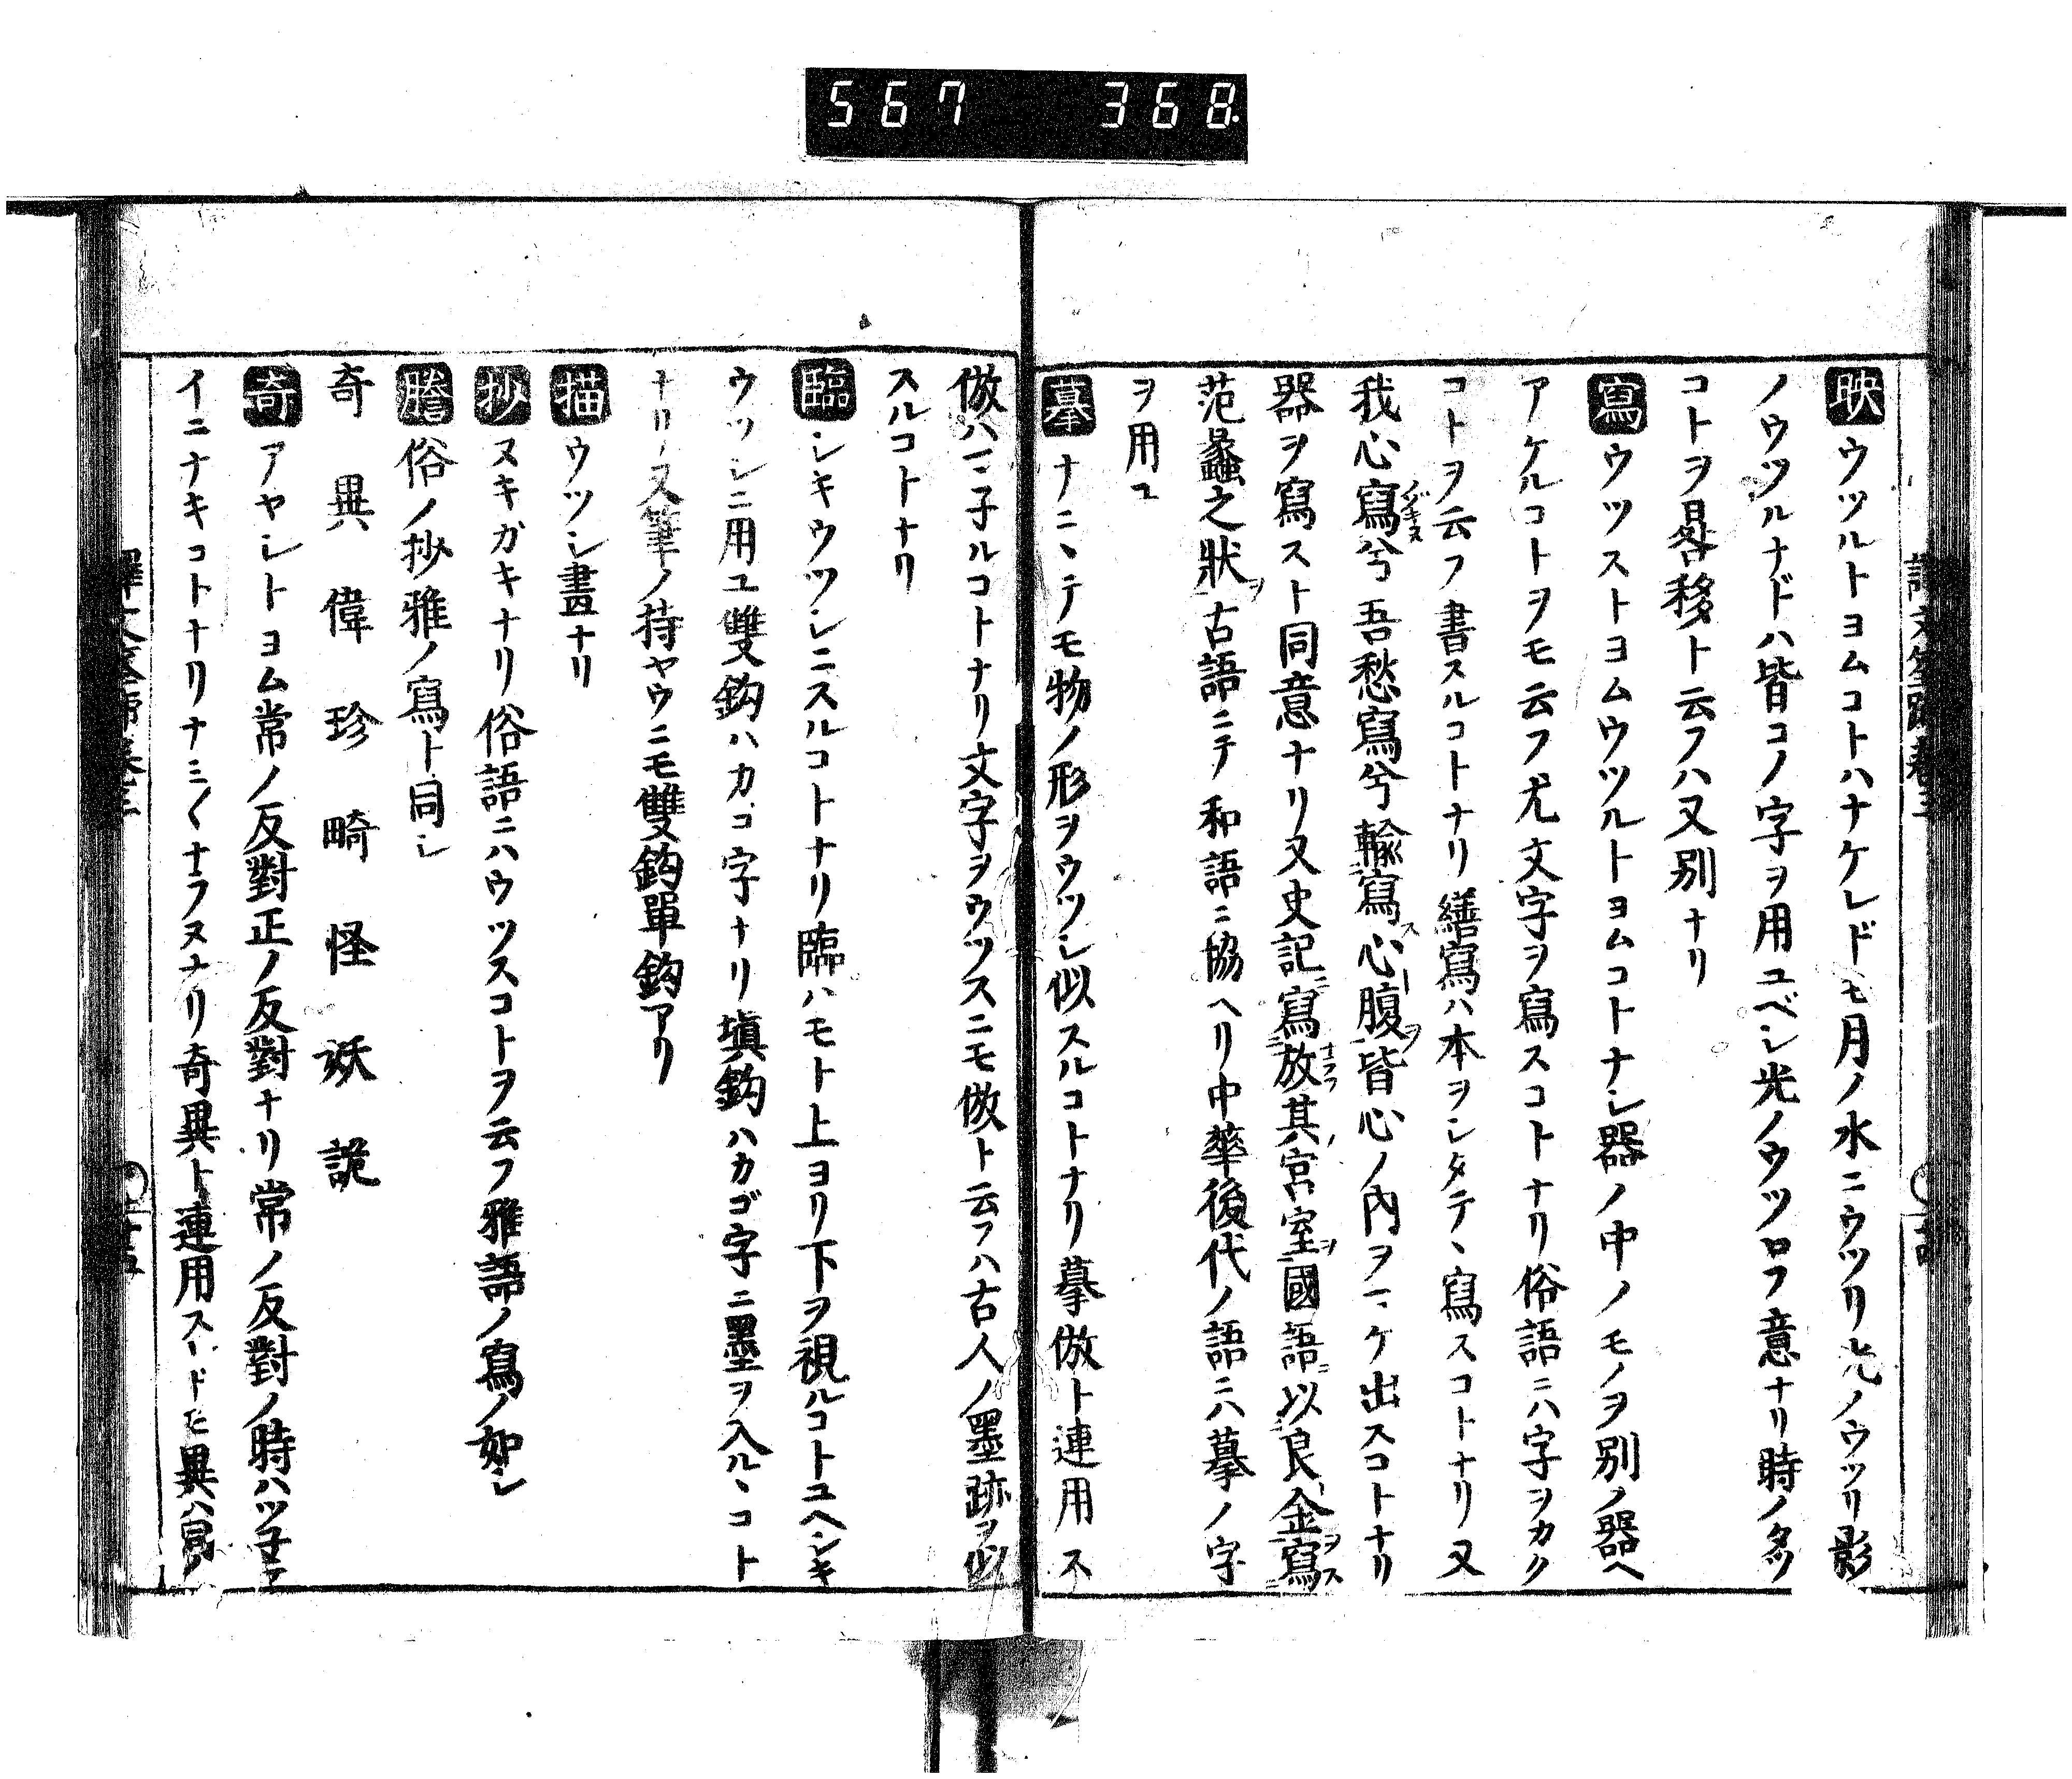 567 368.
映 ウツルトヨムコトハナケレドモ月ノ水ニウツリ光ノウツリ影
ノウツルナドハ皆コノ字ヲ用ユベシ光ノウツロフ意ナリ時ノタツ
コトヲ晷移ト云フハ又別ナリ
寫 ウツストヨムウツルトヨムコトナシ器ノ中ノモノヲ別ノ器ヘ
アケルコトヲモ云フ尤文字ヲ寫スコトナリ俗語ニハ字ヲカク
コトヲ云フ書スルコトナリ繕寫ハ本ヲシタテヽ寫スコトナリ又
我心寫兮吾愁寫兮輸寫心腹皆心ノ內ヲ一ヽケ出スコトナリ
器ヲ寫スト同意ナリ又史記寫放其宮室國語以良金寫
范蠡之狀古語ニテ和語ニ協ヘリ中華後代ノ語ニハ摹ノ字
ヲ用ユ
摹 ナニヽテモ物ノ形ヲウツシ似スルコトナリ摹倣ト連用ス
倣ハマ子ルコトナリ文字ヲウツスニモ倣ト云フハ古人ノ墨跡ヲ似
スルコトナリ
臨 シキウツシニスルコトナリ臨ハモト上ヨリ下ヲ視ルコトユヘシキ
ウツシニ用ユ雙鈎ハカゴ字ナリ塡鈎ハカゴ字ニ墨ヲ入ルヽコト
ナリ又筆ノ持ヤウニモ雙鈎單鈎アリ
描 ウツシ畫ナリ
抄 ヌキガキナリ俗語ニハウツスコトヲ云フ雅語ノ寫ノ如シ
謄 俗ノ抄雅ノ寫ト同シ
奇 異 偉 珍 畸 怪 妖 詭
奇 アヤシトヨム常ノ反對正ノ反對ナリ常ノ反對ノ時ハツ子テ
イニナキコトナリナミ〱ナラヌナリ奇異ト連用スレドモ異ハ